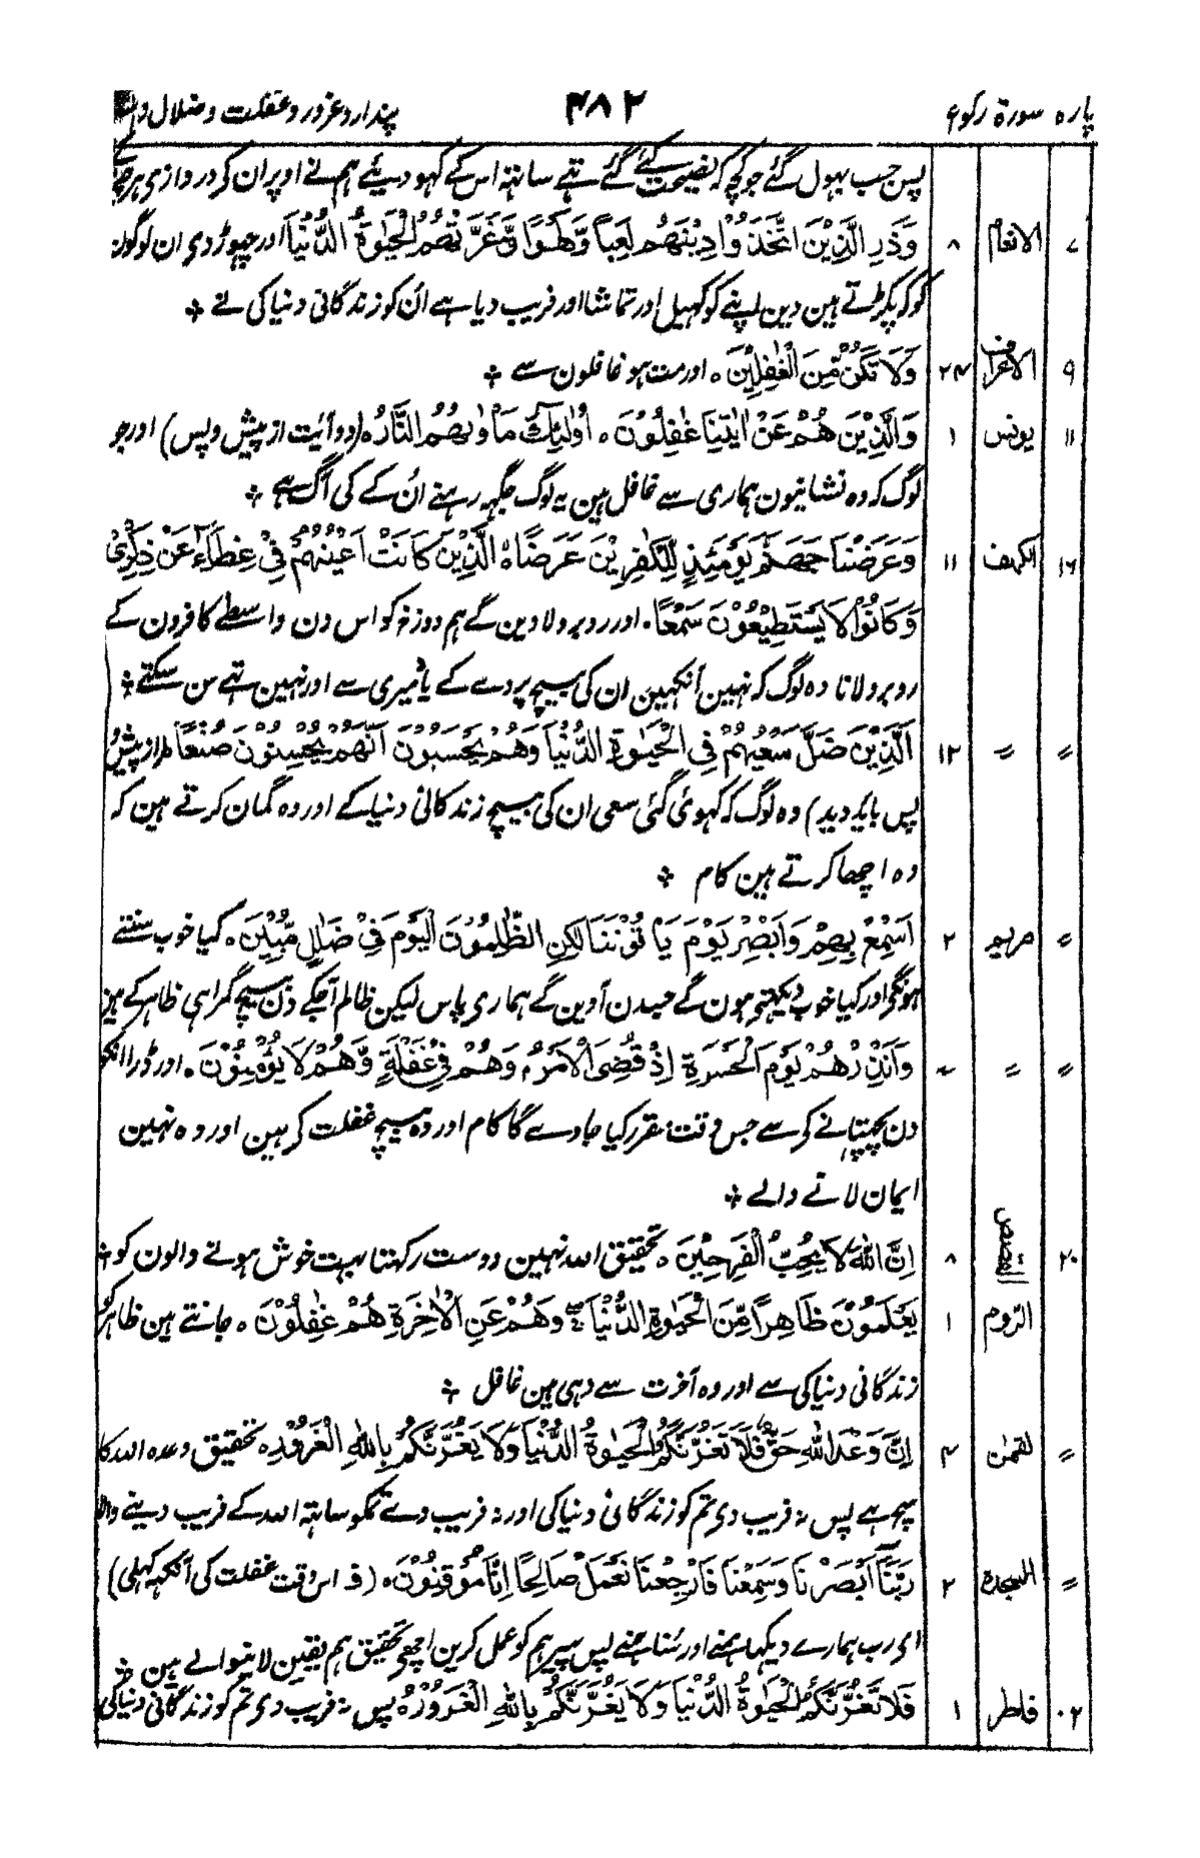 پاره سورة ركوع ۴۸۲ پندار و غرور و غفلت و ضلال
پس جب بہول گئے جو کچھ کہ نصیحت کئے گئے تہے ساتہہ اس کے کہول دیئے ہم نے اوپر ان کو دروازی ہر
۷ الانعام ۸ وَذَرِ الَّذِيْنَ اتَّخَذُوْا دِيْنَهُمْ لَعِبًا وَّلَهْوًا وَّغَرَّتْهُمُ الْحَيٰوةُ الدُّنْيَا اور چہوڑ دی ان لوگون
کو کہ پکڑتے ہین دین اپنے کو کہیل اور تماشا اور فریب دیا ہے ان کو زندگانی دنیا کی نے ÷
۹ الاعراف ۲۴ وَلَا تَكُنْ مِّنَ الْغٰفِلِيْنَ ہ اور مت ہو غافلون سے ÷
۱۱ یونس ۱ وَالَّذِيْنَ هُمْ عَنْ اٰيٰتِنَا غٰفِلُوْنَ ہ اُولٰٓئِكَ مَاْوٰىهُمُ النَّارُ ہ (دو آئیت از پیش و پس) اور جو
لوگ کہ وہ نشانیون ہماری سے غافل ہین یہ لوگ جگہہ رہنے اُن کے کی آگ ہے ÷
۱۶ الکہف ۱۱ وَعَرَضْنَا جَهَنَّمَ يَوْمَئِذٍ لِّلْكٰفِرِيْنَ عَرْضًا ہ الَّذِيْنَ كَانَتْ اَعْيُنُهُمْ فِيْ غِطَآءٍ عَنْ ذِكْرِيْ
وَكَانُوْا لَا يَسْتَطِيْعُوْنَ سَمْعًا ہ اور روبرو لا دین گے ہم دوزخ کو اس دن واسطے کافرون کے
روبرو لانا وہ لوگ کہ تہین آنکہین ان کی بیچ پردے کے یاد میری سے اور نہین تہے سن سکتے ÷
〃 〃 ۱۲ اَلَّذِيْنَ ضَلَّ سَعْيُهُمْ فِي الْحَيٰوةِ الدُّنْيَا وَهُمْ يَحْسَبُوْنَ اَنَّهُمْ يُحْسِنُوْنَ صُنْعًا (از پیش و
پس باید دید) وہ لوگ کہ کہوئی گئی سعی ان کی بیچ زندگانی دنیا کے اور وہ گمان کرتے ہین کہ
وہ اچھا کرتے ہین کام ÷
〃 مریم ۲ اَسْمِعْ بِهِمْ وَاَبْصِرْ يَوْمَ يَاْتُوْنَنَا لٰكِنِ الظّٰلِمُوْنَ الْيَوْمَ فِيْ ضَلٰلٍ مُّبِيْنٍ ہ کیا خوب سنتے
ہونگے اور کیا خوب دیکہتے ہون گے جیدن آوین گے ہماری پاس لیکن ظالم آجکے دن بیچ گمراہی ظاہر کے ہین
〃 〃 〃 وَاَنْذِرْهُمْ يَوْمَ الْحَسْرَةِ اِذْ قُضِيَ الْاَمْرُ وَهُمْ فِيْ غَفْلَةٍ وَّهُمْ لَا يُؤْمِنُوْنَ ہ اور ڈرا انکو
دن پچپتانے کر سے جس وقت مقرر کیا جاوے گا کام اور وہ بیچ غفلت کے ہین اور وہ نہین
ایمان لاتے والے ÷
۲۰ القصص ۸ اِنَّ اللّٰهَ لَا يُحِبُّ الْفَرِحِيْنَ ہ تحقیق اللہ نہین دوست رکہتا بہت خوش ہونے والون کو ÷
الرّوم ۱ يَعْلَمُوْنَ ظَاهِرًا مِّنَ الْحَيٰوةِ الدُّنْيَا وَهُمْ عَنِ الْاٰخِرَةِ هُمْ غٰفِلُوْنَ ہ جانتے ہین ظاہر کو
زندگانی دنیا کی سے اور وہ آخرت سے وہی ہین غافل ÷
〃 لقمٰن ۴ اِنَّ وَعْدَ اللّٰهِ حَقٌّ فَلَا تَغُرَّنَّكُمُ الْحَيٰوةُ الدُّنْيَا وَلَا يَغُرَّنَّكُمْ بِاللّٰهِ الْغَرُوْرُ ہ تحقیق وعدہ اللہ کا
سچ ہے پس نہ فریب دی تم کو زندگانی دنیا کی اور نہ فریب دے تمکو ساتہہ اللہ کے فریب دینے والا
〃 السجدة ۲ رَبَّنَآ اَبْصَرْنَا وَسَمِعْنَا فَارْجِعْنَا نَعْمَلْ صَالِحًا اِنَّا مُوْقِنُوْنَ ہ (ف اس وقت غفلت کی آنکہہ کہلی)
ای رب ہمارے دیکہا ہمنے اور سنا ہمنے پس پھیر ہم کو عمل کرین اچھی تحقیق ہم یقین لانیوالے ہین ÷
۲۰ فاطر ۱ فَلَا تَغُرَّنَّكُمُ الْحَيٰوةُ الدُّنْيَا وَلَا يَغُرَّنَّكُمْ بِاللّٰهِ الْغَرُوْرُ ہ پس نہ فریب دی تم کو زندگانی دنیا کی